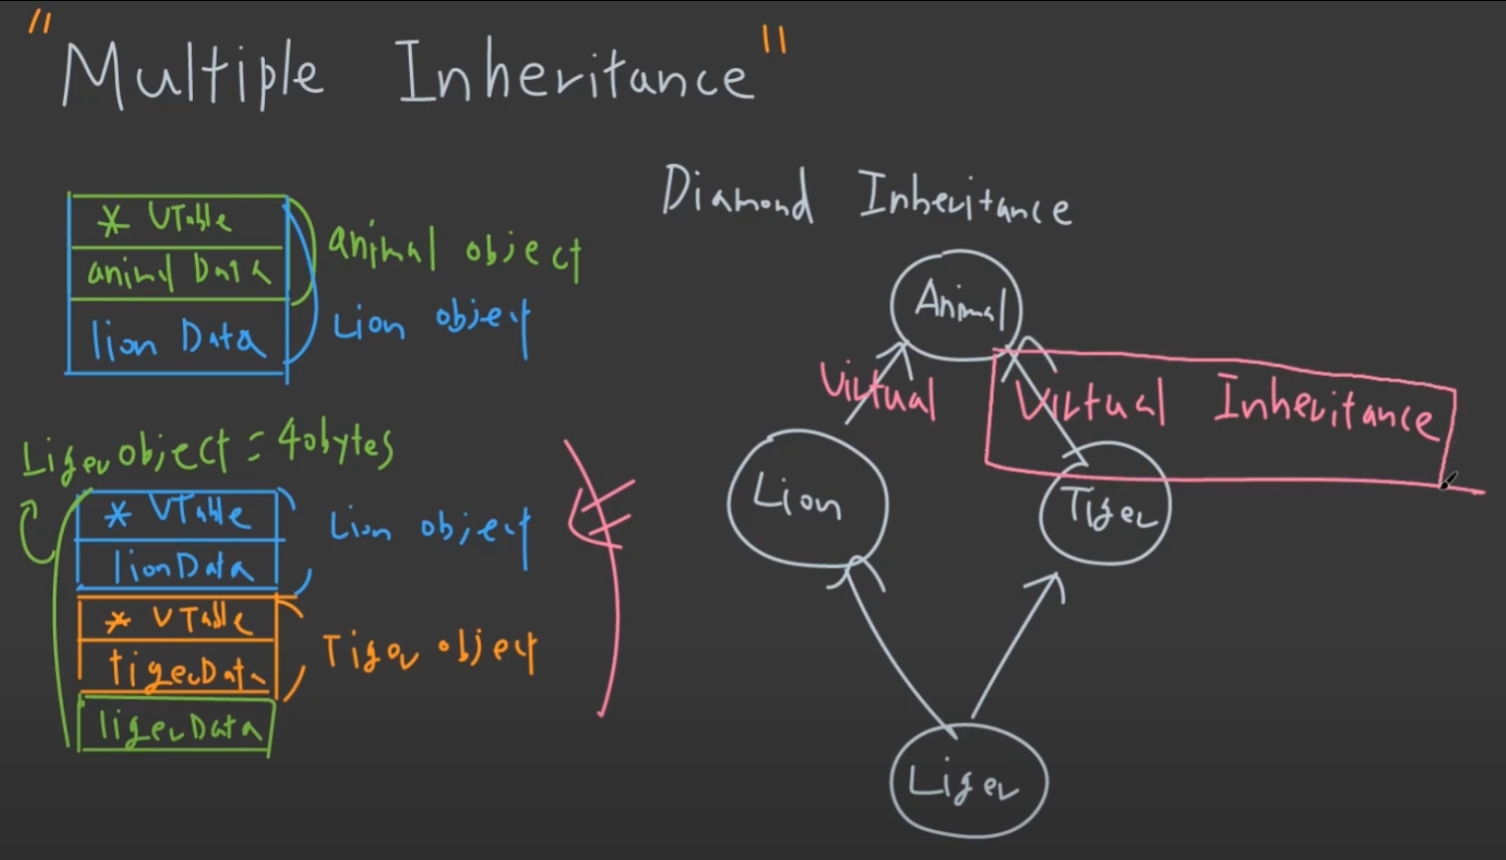 "Multiple Inheritance"
* VTable
animal Data
lion Data
animal object
Lion object
Liger object = 40bytes
* VTable
lionData
Lion object
* VTable
tigerData
Tiger object
ligerData
Diamond Inheritance
Animal
Virtual
Virtual Inheritance
Lion
Tiger
Liger